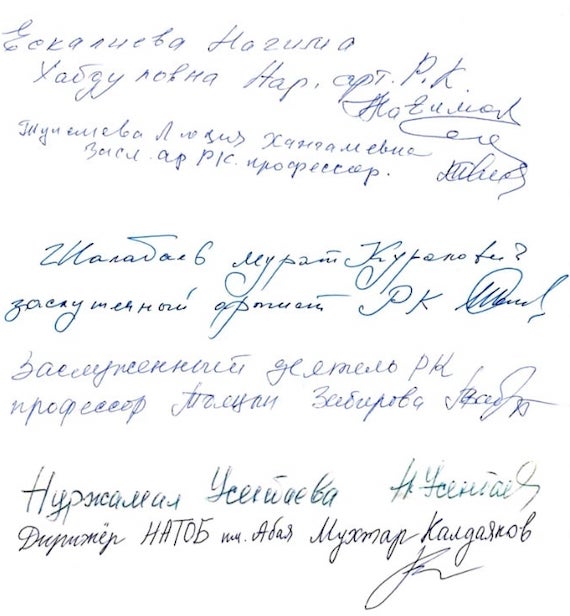 Ескалиева Нагима
Хабдуловна Нар. арт. Р.К.
Тулешева Люция Хангамевна
Засл. ар РК. профессор.
Шалабаев Мурат Куропович
заслуженный артист РК
Заслуженный деятель РК
профессор Толкын Забирова
Нуржамал Усенбаева Н. Усенбаев
Дирижёр НАТОБ им. Абая Мухтар Калдаяков